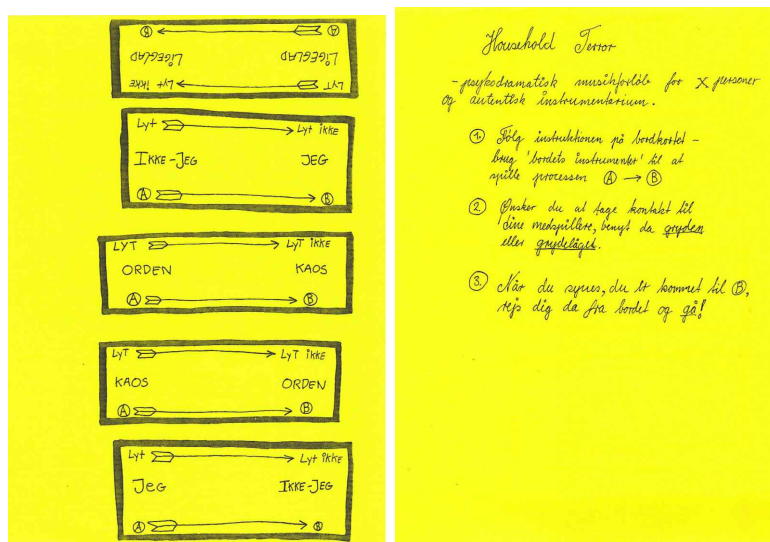 LYT Lyt ikke
LIGEGLAD LIGEGLAD
A B
Lyt Lyt ikke
IKKE-JEG JEG
A B
LYT LYT ikke
ORDEN KAOS
A B
LYT LYT ikke
KAOS ORDEN
A B
Lyt Lyt ikke
JEG IKKE-JEG
A B
Household Terror
- psykodramatisk musikforløb for X personer
og autentisk instrumentarium.
1. Følg instruktionen på bordkortet –
brug 'bordets instrumenter' til at
spille processen A → B
2 Ønsker du at tage kontakt til
dine medspillere, benyt da gryden
eller grydelåget.
3. Når du synes, du er kommet til B,
rejs dig da fra bordet og gå!